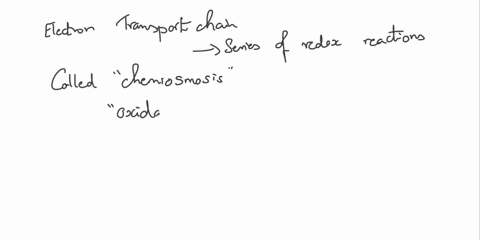 Electron Transport chain
→ Series of redox reactions
Called "chemiosmosis"
"oxida